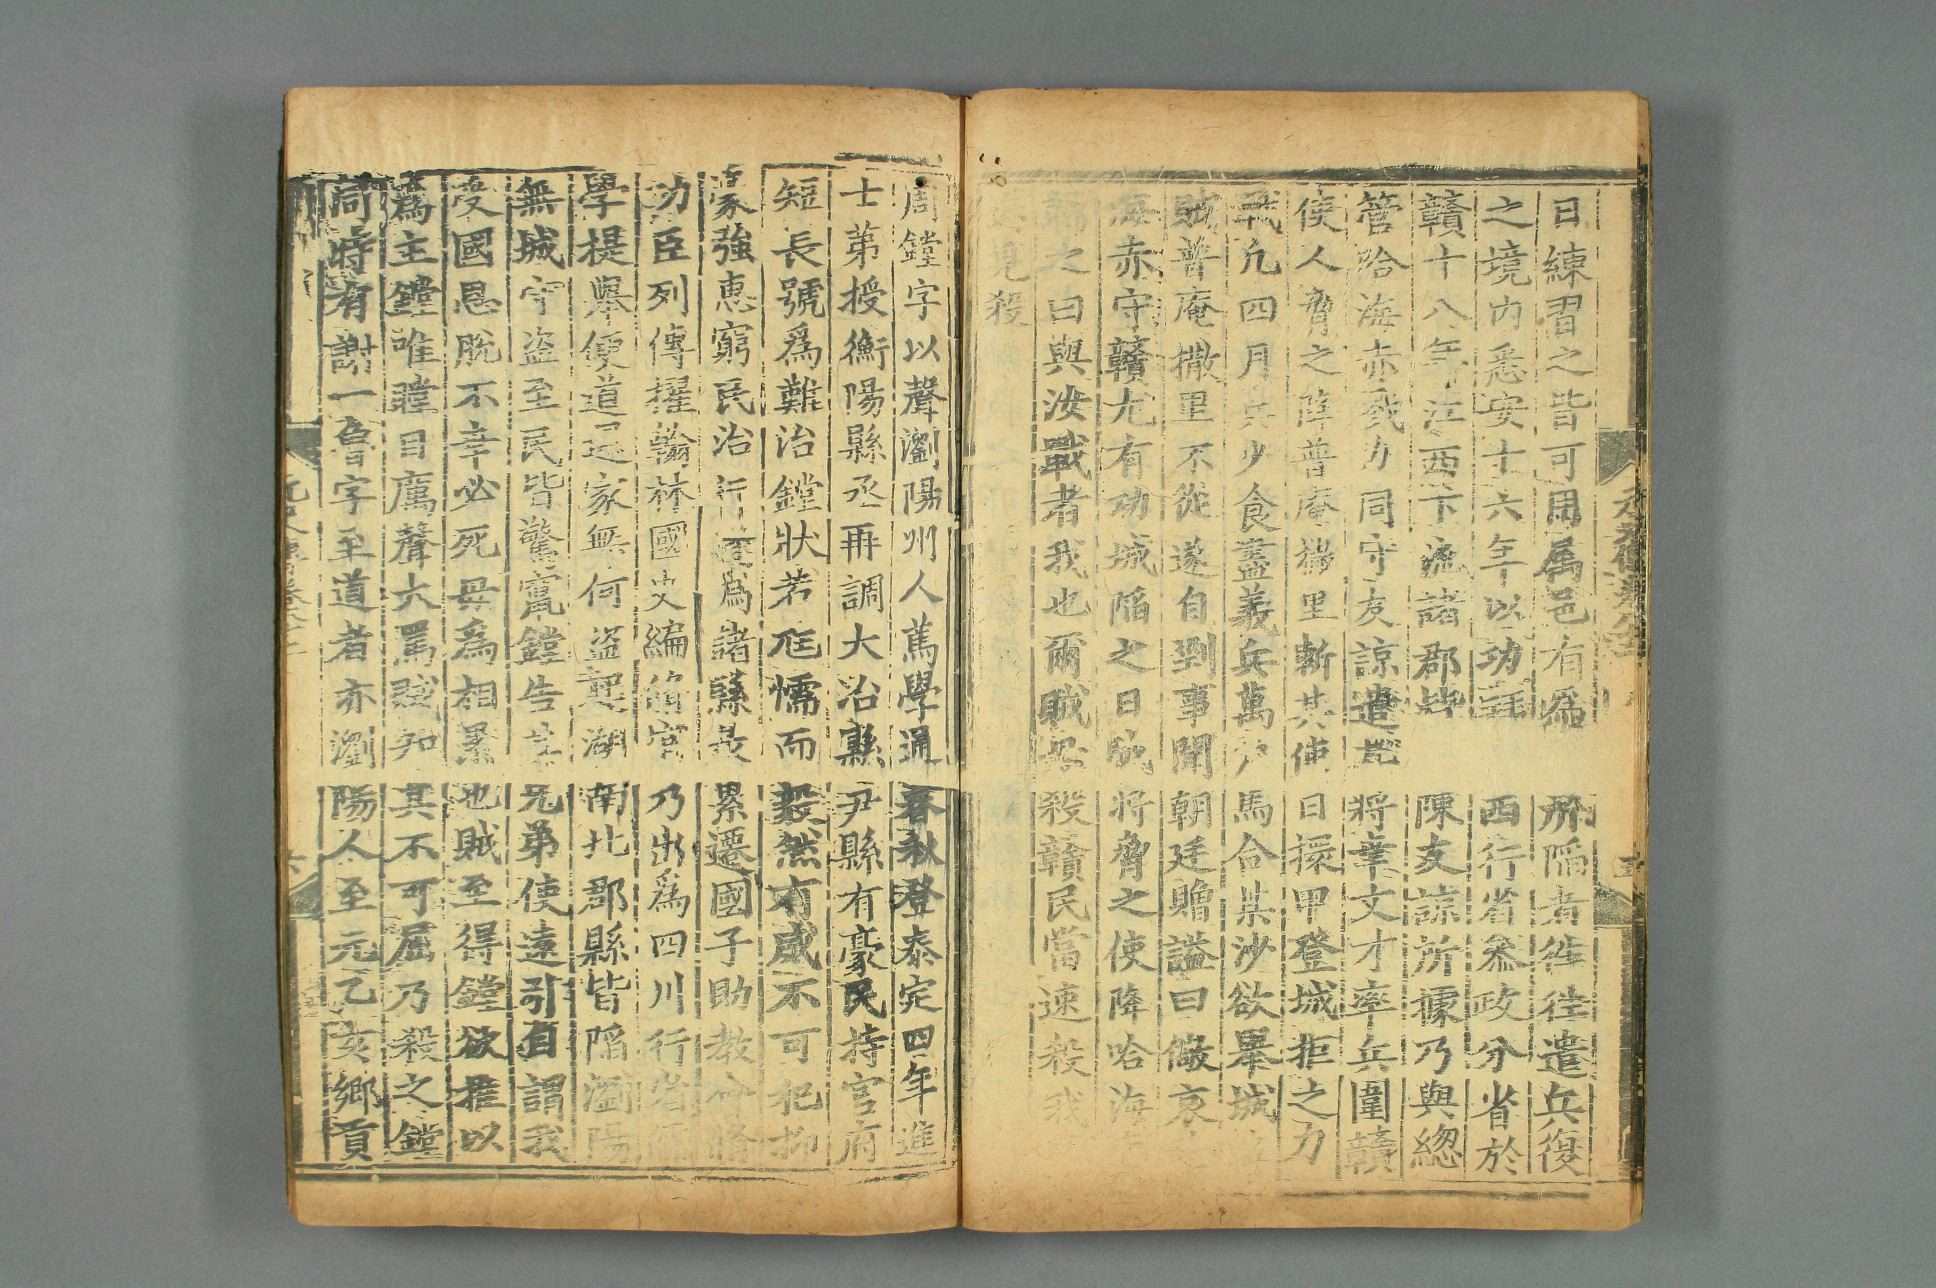 日練習之皆可用屬邑有爲所陷者往往遣兵復
之境内悉安十六年以功拜西行省叅政分省於
贛十八年江西下流諸郡皆陳友諒所據乃與總
管哈海赤戮力同守友諒遣其將業文才率兵圍贛
使人脅之降普庵撒里斬其使日擐甲登城拒之力
戰凡四月兵少食盡義兵萬戶馬合某沙欲舉城
賊普庵撒里不從遂自剄事聞朝廷贈謚曰儆哀
海赤守贛尤有功城陷之日賊將脅之使降哈海
之曰與汝戰者我也爾賊毋殺贛民當速殺我
見殺
周鏜字以聲瀏陽州人篤學通春秋登泰定四年進
士第授衡陽縣丞再調大冶縣尹縣有豪民持官府
短長號爲難治鏜狀若尫懦而毅然有威不可犯抑
豪強惠窮民治行遂爲諸縣最累遷國子助教會脩
功臣列傳擢翰林國史編脩官乃出爲四川行省儒
學提舉便道還家無何盜起湖南北郡縣皆陷瀏陽
無城守盜至民皆驚竄鏜告其兄弟使遠引自謂我
受國恩脫不幸必死毋爲相累也賊至得鏜欲推以
爲主鏜唯瞠目厲聲大罵賊知其不可屈乃殺之鏜
同時有謝一魯字至道者亦瀏陽人至元乙亥鄉貢